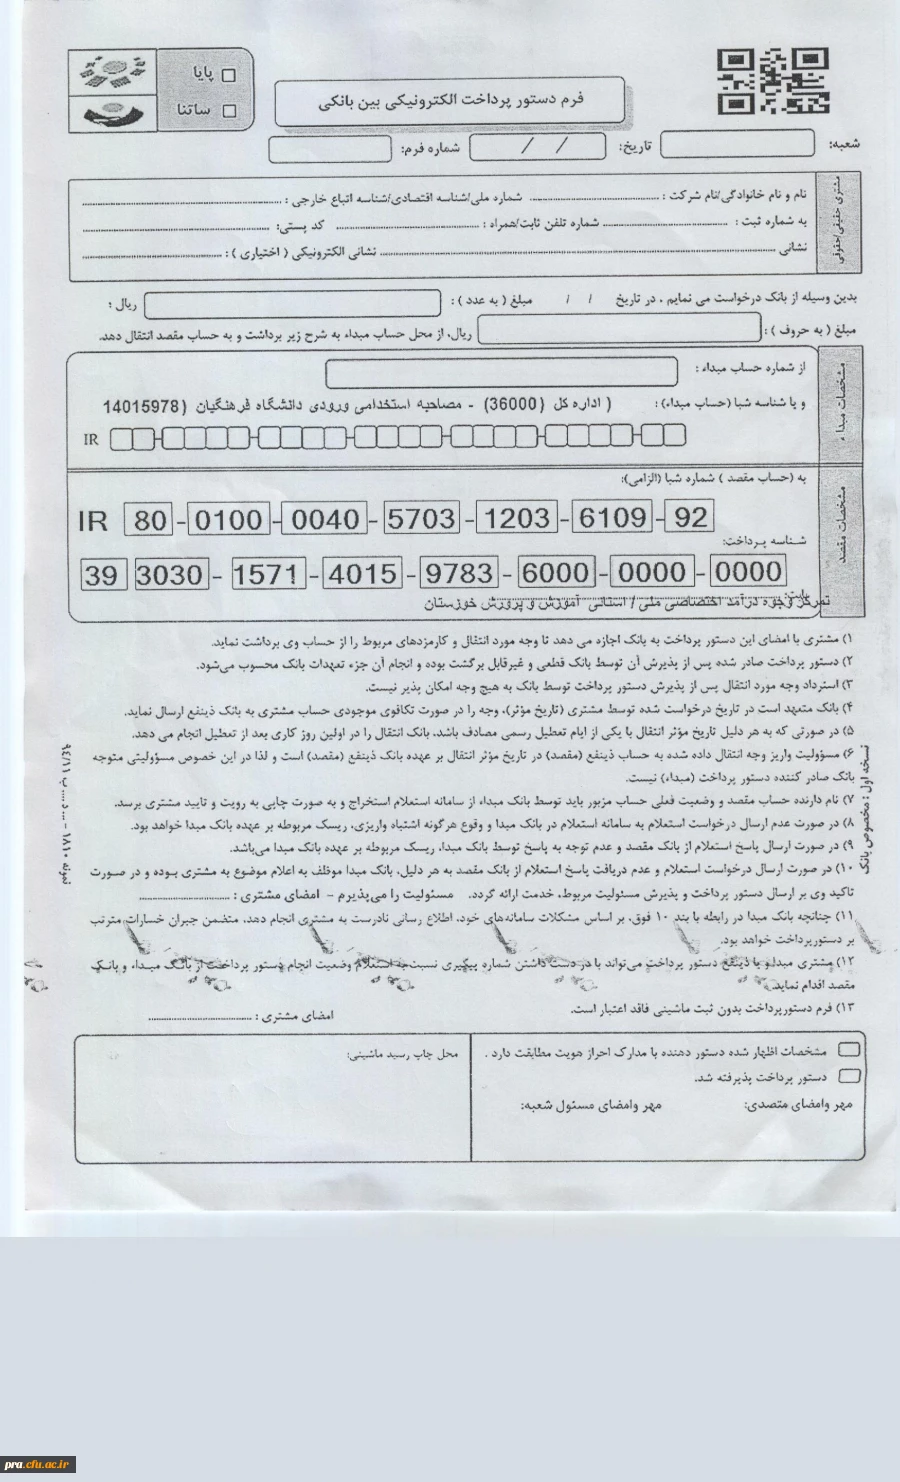 فرم دستور پرداخت الکترونیکی بین بانکی
پایا
ساتنا
شعبه:
تاریخ: / /
شماره فرم:
مشتری حقیقی/حقوقی
نام و نام خانوادگی/نام شرکت : شماره ملی/شناسه اقتصادی/شناسه اتباع خارجی :
به شماره ثبت : شماره تلفن ثابت/همراه : کد پستی:
نشانی نشانی الکترونیکی ( اختیاری ) :
بدین وسیله از بانک درخواست می نمایم . در تاریخ / / مبلغ ( به عدد ) : ریال ؛
مبلغ ( به حروف ) : ریال، از محل حساب مبداء به شرح زیر برداشت و به حساب مقصد انتقال دهد.
مشخصات مبداء
از شماره حساب مبداء :
و یا شناسه شبا (حساب مبداء): ( اداره کل (36000) - مصاحبه استخدامی ورودی دانشگاه فرهنگیان (14015978
IR
مشخصات مقصد
به (حساب مقصد ) شماره شبا (الزامی):
IR 80-0100-0040-5703-1203-6109-92
شناسه پرداخت:
39 3030-1571-4015-9783-6000-0000-0000
بابت:
تمرکز وجوه درآمد اختصاصی ملی/ استانی آموزش و پرورش خوزستان
۱) مشتری با امضای این دستور پرداخت به بانک اجازه می دهد تا وجه مورد انتقال و کارمزدهای مربوط را از حساب وی برداشت نماید.
۲) دستور پرداخت صادر شده پس از پذیرش آن توسط بانک قطعی و غیرقابل برگشت بوده و انجام آن جزء تعهدات بانک محسوب می‌شود.
۳) استرداد وجه مورد انتقال پس از پذیرش دستور پرداخت توسط بانک به هیچ وجه امکان پذیر نیست.
۴) بانک متعهد است در تاریخ درخواست شده توسط مشتری (تاریخ مؤثر)، وجه را در صورت تکافوی موجودی حساب مشتری به بانک ذینفع ارسال نماید.
۵) در صورتی که به هر دلیل تاریخ مؤثر انتقال با یکی از ایام تعطیل رسمی مصادف باشد، بانک انتقال را در اولین روز کاری بعد از تعطیل انجام می دهد.
۶) مسؤولیت واریز وجه انتقال داده شده به حساب ذینفع (مقصد) در تاریخ مؤثر انتقال بر عهده بانک ذینفع (مقصد) است و لذا در این خصوص مسؤولیتی متوجه
بانک صادر کننده دستور پرداخت (مبداء) نیست.
۷) نام دارنده حساب مقصد و وضعیت فعلی حساب مزبور باید توسط بانک مبداء از سامانه استعلام استخراج و به صورت چاپی به رویت و تایید مشتری برسد.
۸) در صورت عدم ارسال درخواست استعلام به سامانه استعلام در بانک مبدا و وقوع هرگونه اشتباه واریزی، ریسک مربوطه بر عهده بانک مبدا خواهد بود.
۹) در صورت ارسال پاسخ استعلام از بانک مقصد و عدم توجه به پاسخ توسط بانک مبدا، ریسک مربوطه بر عهده بانک مبدا می‌باشد.
۱۰) در صورت ارسال درخواست استعلام و عدم دریافت پاسخ استعلام از بانک مقصد به هر دلیل، بانک مبدا موظف به اعلام موضوع به مشتری بوده و در صورت
تاکید وی بر ارسال دستور پرداخت و پذیرش مسئولیت مربوط، خدمت ارائه گردد. مسئولیت را می‌پذیرم - امضای مشتری :
۱۱) چنانچه بانک مبدا در رابطه با بند ۱۰ فوق، بر اساس مشکلات سامانه‌های خود، اطلاع رسانی نادرست به مشتری انجام دهد، متضمن جبران خسارات مترتب
بر دستورپرداخت خواهد بود.
۱۲) مشتری مبدا و یا ذینفع دستور پرداخت می‌تواند با در دست داشتن شماره پیگیری نسبت به استعلام وضعیت انجام دستور پرداخت از بانک مبداء و بانک
مقصد اقدام نماید.
۱۳) فرم دستورپرداخت بدون ثبت ماشینی فاقد اعتبار است. امضای مشتری :
نسخه اول : مخصوص بانک
نمونه ۱۸۱۰ ۹۴/۱۱
مشخصات اظهار شده دستور دهنده با مدارک احراز هویت مطابقت دارد .
دستور پرداخت پذیرفته شد.
مهر وامضای متصدی: مهر وامضای مسئول شعبه:
محل چاپ رسید ماشینی:
pra.cfu.ac.ir